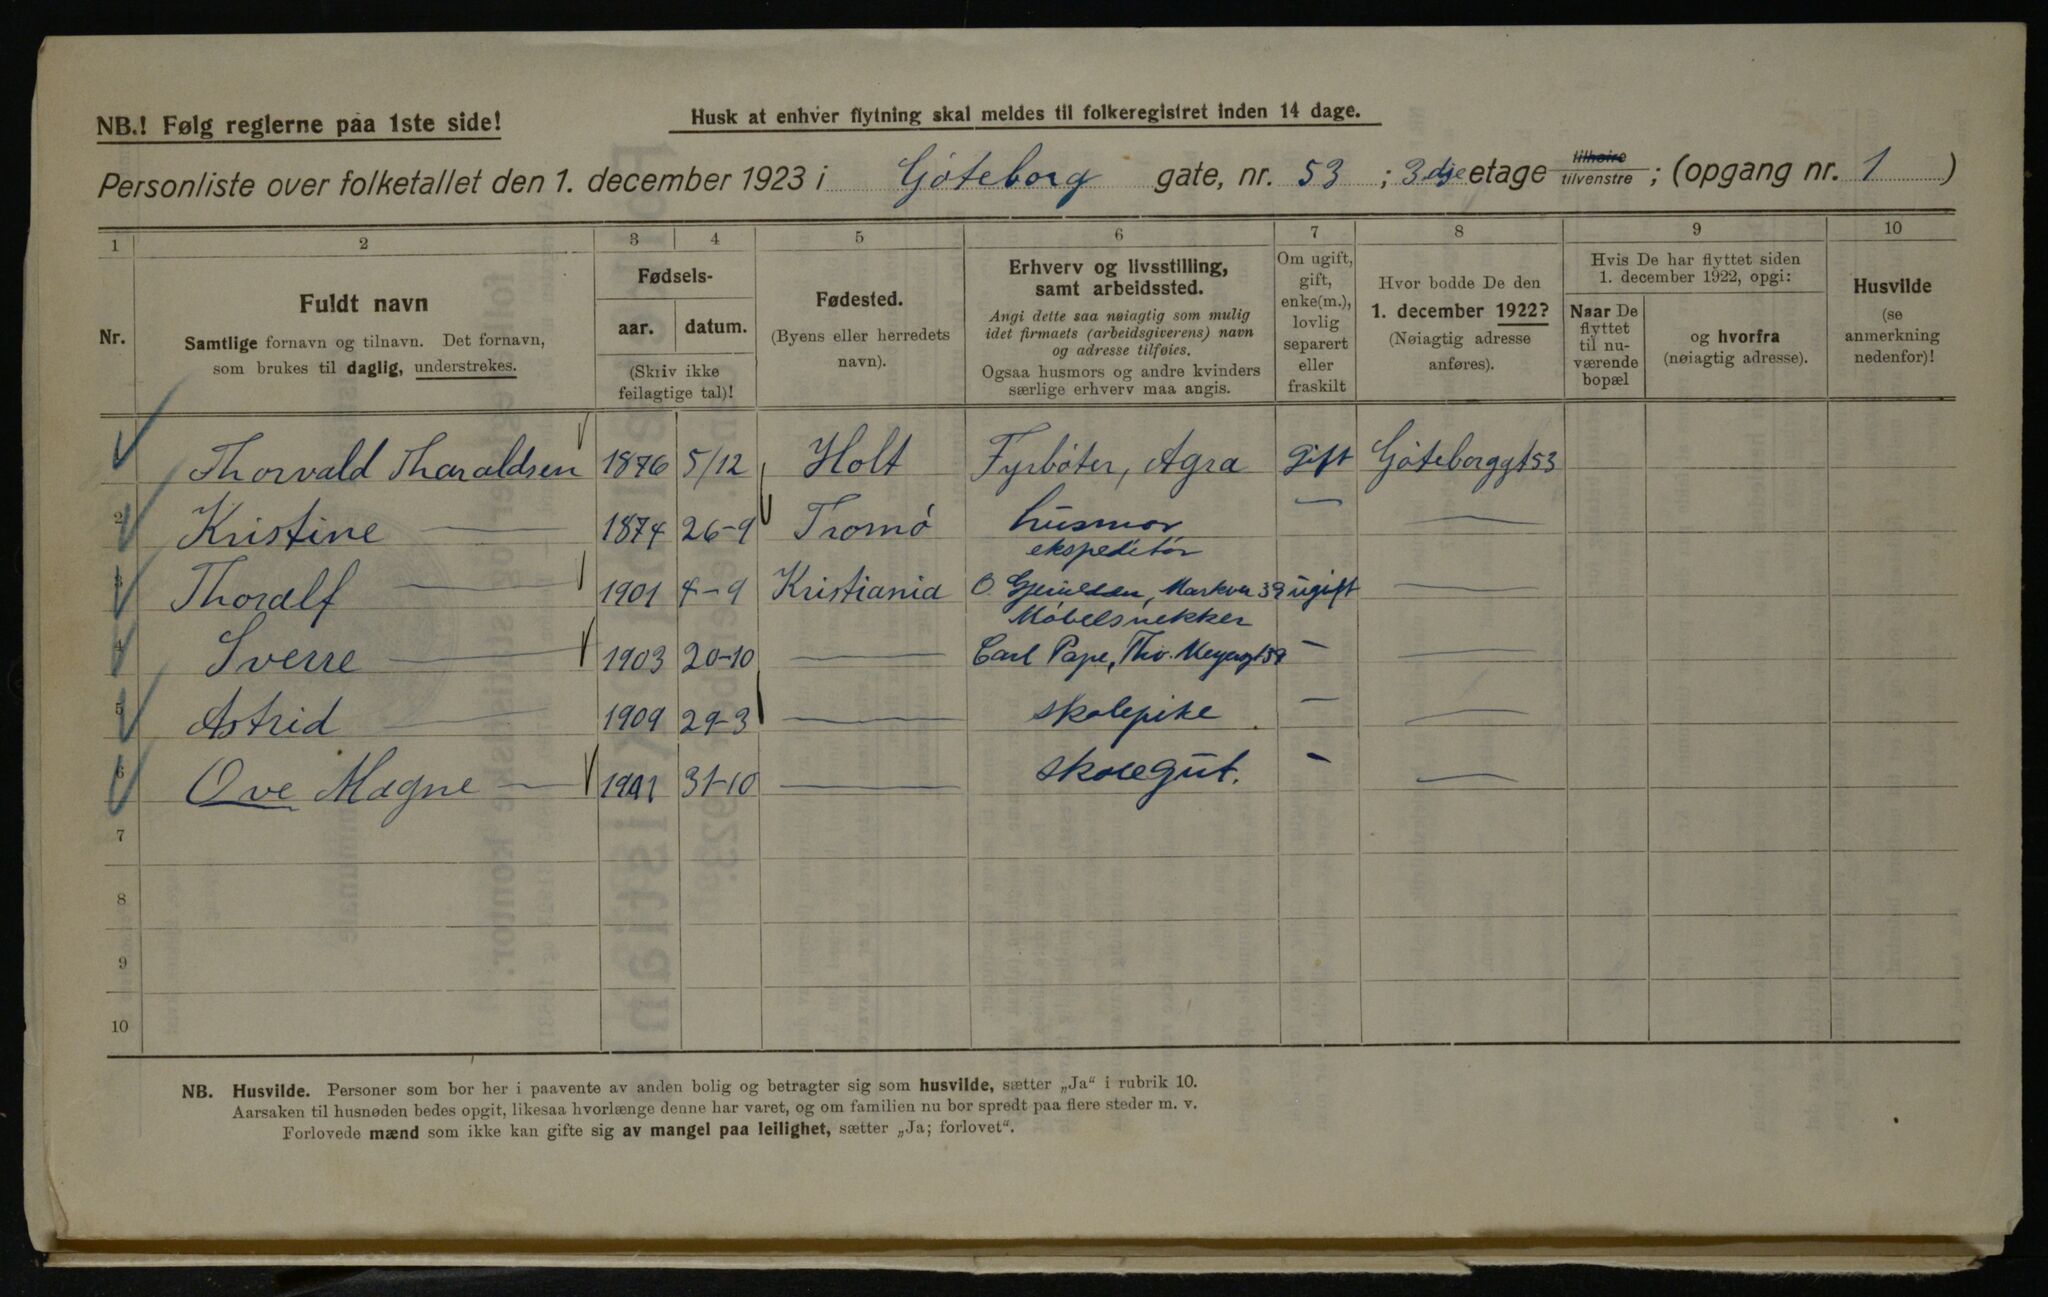 NB.! Følg reglerne paa 1ste side!
Husk at enhver flytning skal meldes til folkeregistret inden 14 dage.
Personliste over folketallet den 1. december 1923 i Göteborg gate, nr. 53 ; 3dje etage tilhøire tilvenstre ; (opgang nr. 1 )
1 2 3 4 5 6 7 8 9 10
Nr.
Fuldt navn
Samtlige fornavn og tilnavn. Det fornavn,
som brukes til daglig, understrekes.
Fødsels-
aar. datum.
(Skriv ikke
feilagtige tal)!
Fødested.
(Byens eller herredets
navn).
Erhverv og livsstilling,
samt arbeidssted.
Angi dette saa nøiagtig som mulig
idet firmaets (arbeidsgiverens) navn
og adresse tilføies.
Ogsaa husmors og andre kvinders
særlige erhverv maa angis.
Om ugift,
gift,
enke(m.),
lovlig
separert
eller
fraskilt
Hvor bodde De den
1. december 1922?
(Nøiagtig adresse
anføres).
Hvis De har flyttet siden
1. december 1922, opgi:
Naar De
flyttet
til nu-
værende
bopæl
og hvorfra
(nøiagtig adresse).
Husvilde
(se
anmerkning
nedenfor)!
Thorvald Tharaldsen 1876 5/12 Holt Fyrbøter, Agra gift Göteborggt 53
2 Kristine — 1874 26-9 Tromö husmor — —
ekspeditör
3 Thoralf — 1901 4-9 Kristiania O. Markvn 39 ugift —
Møbelsnekker
4 Sverre — 1903 20-10 — Carl Pape, Thv. Meyersgt 39 — —
5 Astrid — 1909 29-3 — skolepike — —
6 Ove Magne — 1911 31-10 — skolegut. — —
7
8
9
10
NB. Husvilde. Personer som bor her i paavente av anden bolig og betragter sig som husvilde, sætter „Ja“ i rubrik 10.
Aarsaken til husnøden bedes opgit, likesaa hvorlænge denne har varet, og om familien nu bor spredt paa flere steder m. v.
Forlovede mænd som ikke kan gifte sig av mangel paa leilighet, sætter „Ja; forlovet“.